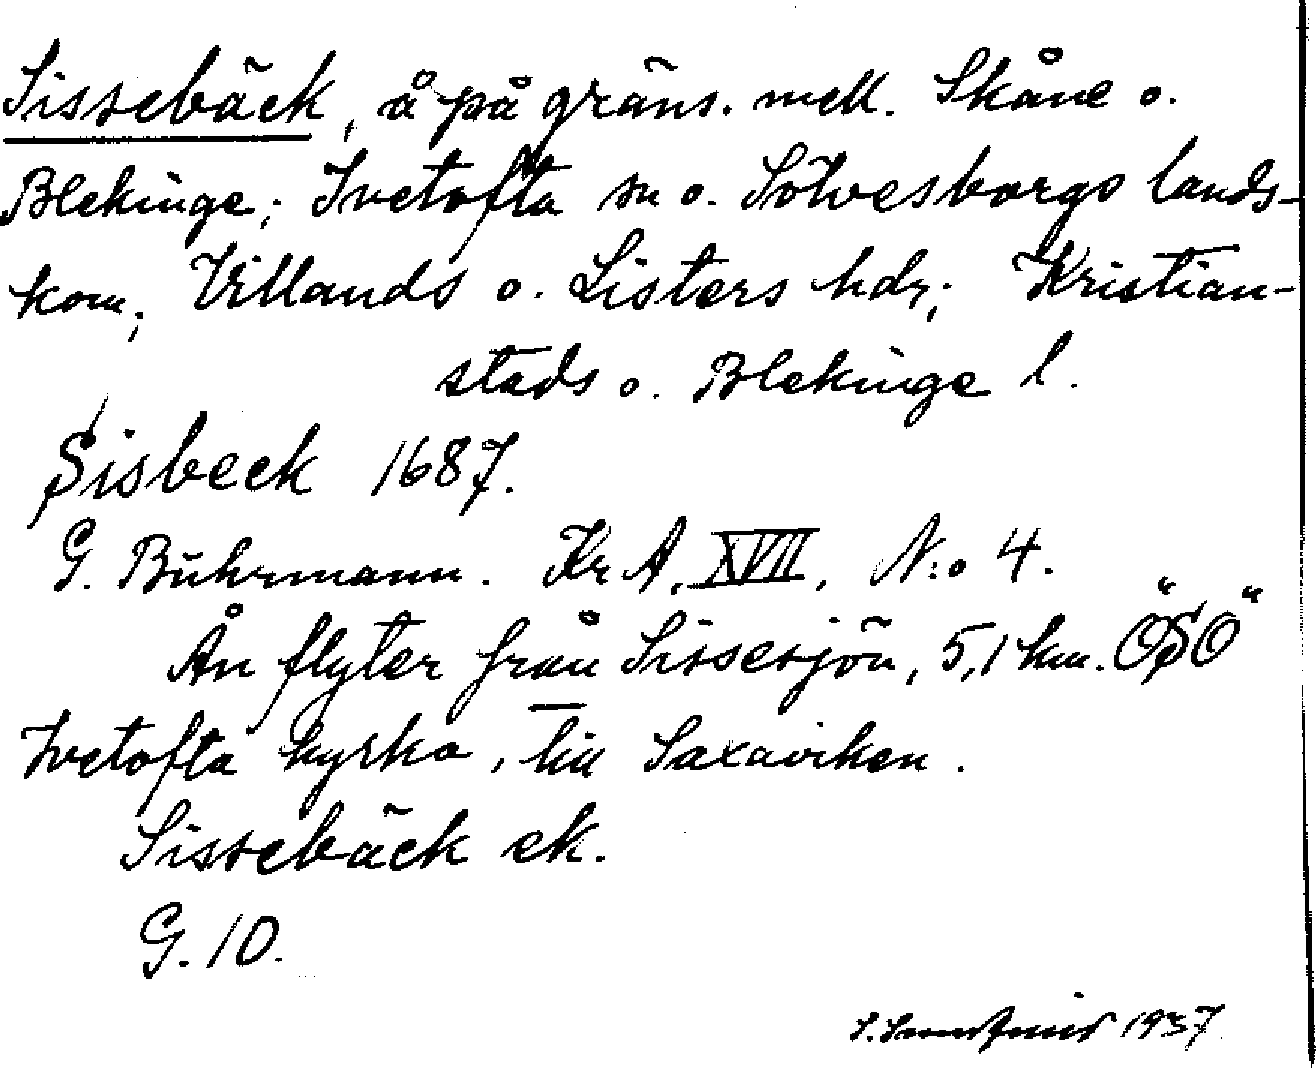 Sissebäck, å på gräns. mell. Skåne o.
Blekinge; Ivetofta sn o. Sölvesborgs lands-
kom; Villands o. Listers hdr; Kristian-
stads o. Blekinge l.
Sisbeck 1687.
G. Buhrmann. Kr A. XVII, N:o 4.
Ån flyter från Sissesjön, 5,1 km. ÖSÖ
Ivetofta kyrka, till Saxaviken.
Sissebäck ek.
G. 10.
1937